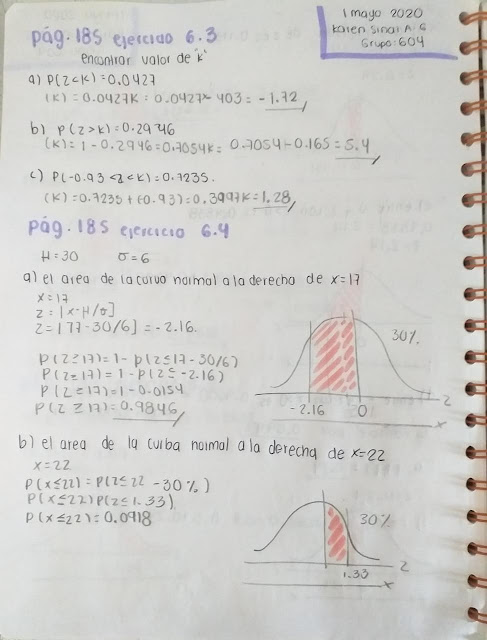 1 mayo 2020
Karen Sinai A G
Grupo: 604
pág. 185 ejercicio 6.3
encontrar valor de "k"
a) P(z<k)=0.0427
(k)=0.0427k=0.0427- 403=-1.72
b) P(z>k)=0.2946
(k)=1-0.2946=0.7054k= 0.7054-0.165=5.4
c) P(-0.93<z<k)=0.7235.
(k)=0.7235+(0.93)=0.3997k=1.28
pág. 185 ejercicio 6.4
μ=30 σ=6
a) el area de la curva normal a la derecha de x=17
x=17
z=[x-μ/σ]
z=[17-30/6]=-2.16.
P(z≥17)=1-p(z≤17-30/6)
P(z≥17)=1-p(z≤-2.16)
P(z≥17)=1-0.0154
P(z≥17)=0.9846
30%
-2.16 0 z
x
b) el area de la curba normal a la derecha de x=22
x=22
P(x≤22)=P(z≤22-30%)
P(x≤22)P(z≤1.33)
P(x≤22)=0.0918
30%
1.33 z
x